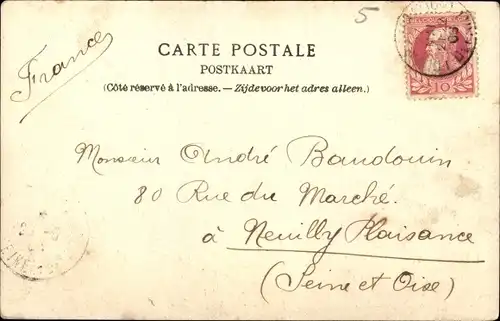 5
France
CARTE POSTALE
POSTKAART
(Côté réservé à l'adresse. — Zijde voor het adres alleen.)
BELGIQUE BELGIË
10
Monsieur André Baudouin
80 Rue du Marché.
à Neuilly Plaisance
(Seine et Oise)